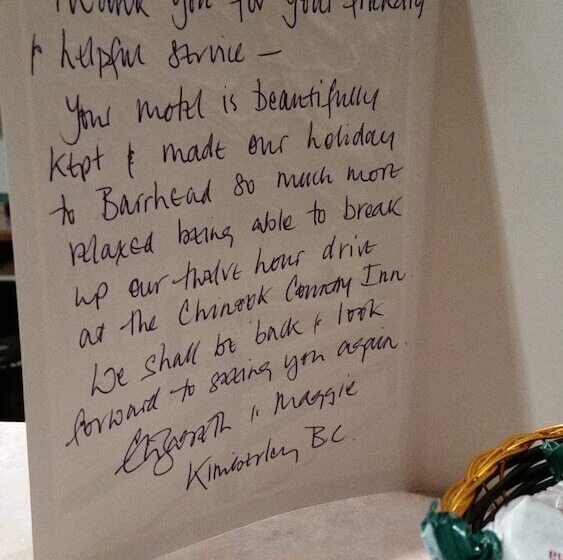 Thank you for your friendly
& helpful service —
Your motel is beautifully
kept & made our holiday
to Barrhead so much more
relaxed being able to break
up our twelve hour drive
at the Chinook Country Inn.
We shall be back & look
forward to seeing you again.
Elizabeth & Maggie
Kimberley BC.